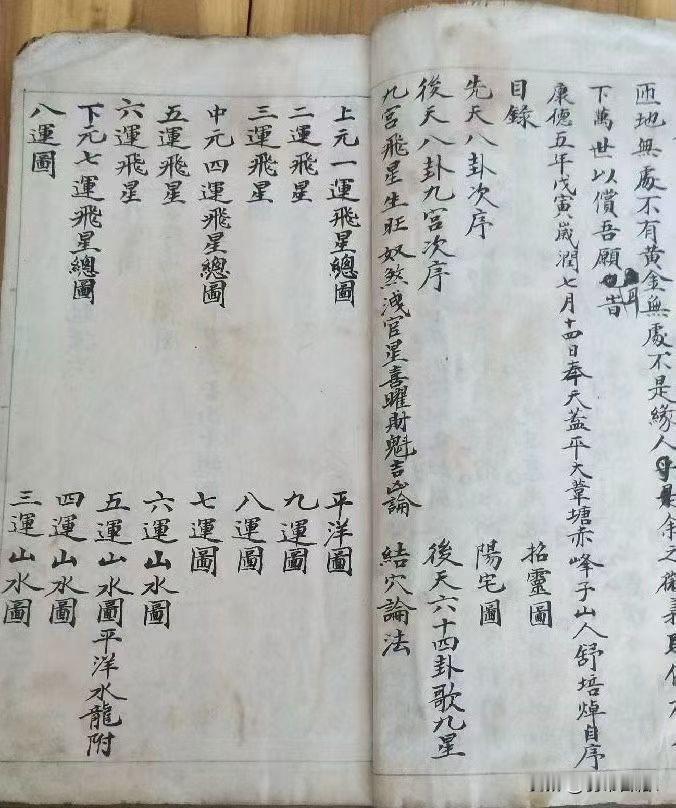 匝地無處不有黃金無處不是緣人余之
下萬世以償吾願旹
康德五年戊寅歲潤七月十四日奉天蓋平大葦塘赤峰子山人舒培焯自序
目錄
招靈圖
先天八卦次序
陽宅圖
後天八卦九宮次序
後天六十四卦歌九星
九宮飛星生旺奴煞洩官星喜曜財魁吉凶論
結穴論法
上元一運飛星總圖
平洋圖
二運飛星
九運圖
三運飛星
八運圖
中元四運飛星總圖
七運圖
五運飛星
六運山水圖
六運飛星
五運山水圖平洋水龍附
下元七運飛星總圖
四運山水圖
八運圖
三運山水圖